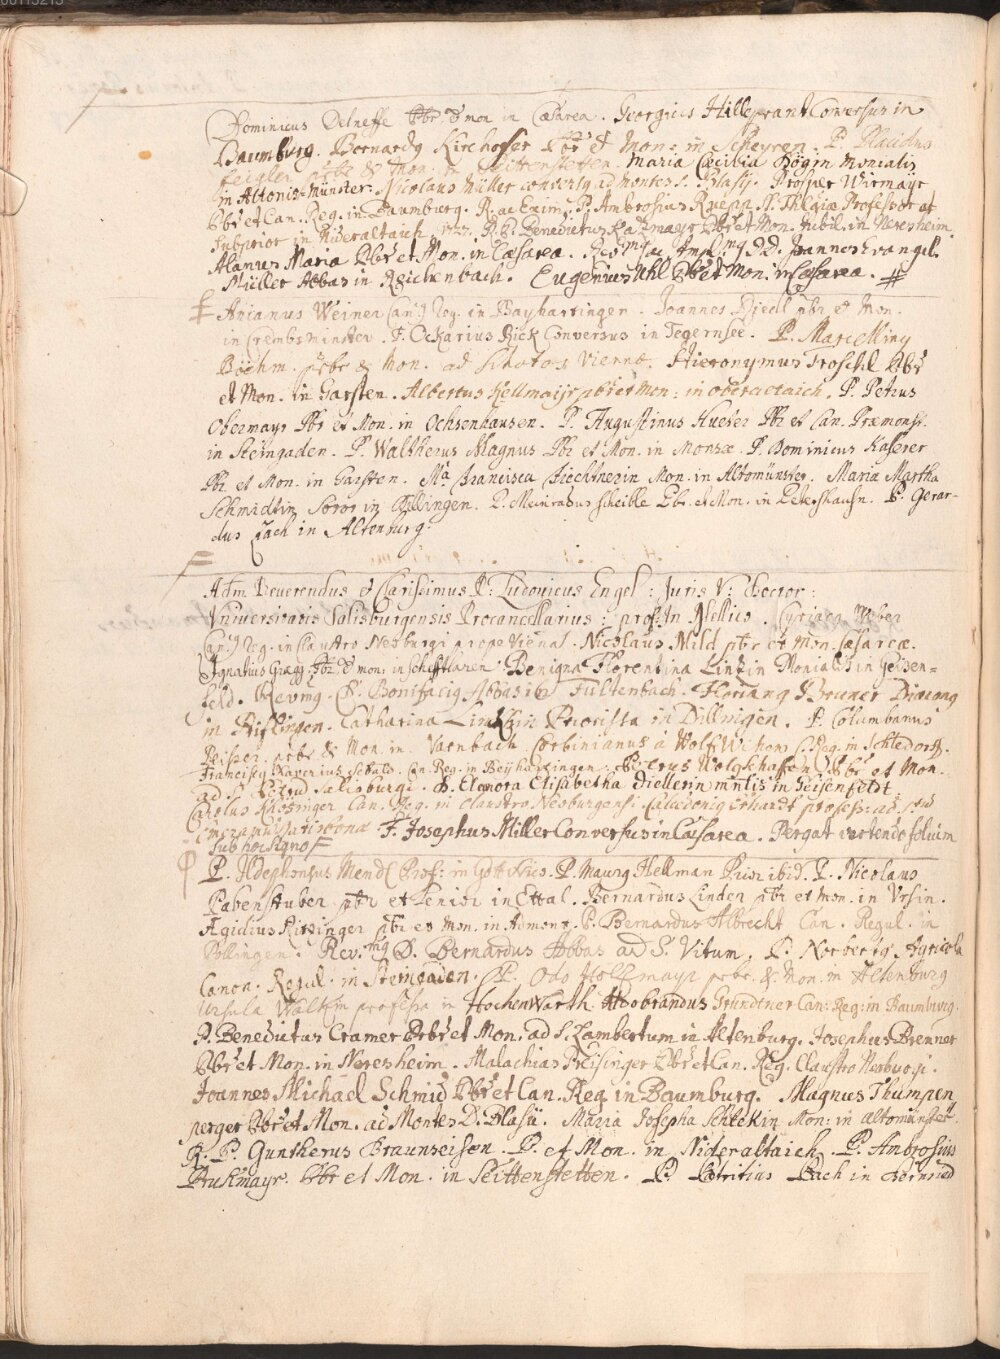 Dominicus Delneffe Pbr & mon in Cæsarea. Georgius Hilleprant Conversus in
Baumburg. Bernardg Kirchoffer Pbr et Mon: in Scheyren. P. Placidus
Zeigler prbr & Mon. in Seittenstetten. Maria Cæcibia Bögin Monialis
in Altonis-Münster. Nicolaus Müller conversg ad montes S. Blasÿ. Prosper Wirmaÿr
Pbr et Can. Reg. in Baumburg. R. ac Exim. P. Ambrosius Ruepp SS. Thlgiæ Professor ac
Subprior in Nideraltaich 1727. R. P. Benedictus Kazmayr Pbr et Mon. Jubil. in Neresheim.
Alanus Maria Pbr et Mon. in Cæsarea. Revdmg ac Ampl.mg DD. Joannes Evangel.
Müller Abbas in Reichenbach. Eugenius Uhl Pbr et Mon. in Cæsarea. #
Anianus Weiner Can. Reg. in Bayharttingen. Joannes Diell pbr et Mon.
in Crembsminster. F. Ockarius Rick Conversus in Tegernsee. P. Marcelling
Böehm. prbr & Mon. ad Scotos Viennæ. Hieronymus Troschl Pbr
et Mon. in Garsten. Albertus Kellmaijr pbr et Mon: in oberaltaich. P. Petrus
Obermayr Pbr et Mon. in Ochsenhausen. P. Augustinus Hueber Pbr et Can. Præmonst.
in Steingaden. P. Waltherus Magnus Pbr et Mon. in Monsæ. P. Dominicus Kaserer
Pbr et Mon. in Garsten. Ma Francisca Fiechtnerin Mon. in Altomünster. Maria Martha
Schmidtin Soror in Dillingen. P. Meinradus Scheible Pbr. et Mon. in Petershausn. P. Gerar-
dus Zach in Altenburg.
Adm Reverendus et Clarissimus P: Ludovicus Engel: Juris V: Doctor:
Universitatis Salisburgensis Procancellarius: prof. in Mellico. Cyriacg Weber
Can. Reg. in Claustro Neoburgi prope Vienā. Nicolaus Mild pbr et Mon. Cæsareæ.
Ignatius Grägg. Pbr & mon: in Schefftlaren. Benigna Florentina Linkin Monialis in Geisen-
feld. Revdmg. D. Bonifacig Abbas in Fultenbach. Floriang Bruner Diacong
in Diessen. Catharina Linkhin Priorissa in Dillingen. P. Columbanus
Peisser prbr & Mon. in Varnbach. Corbinianus à Wolfswisen C. Reg. in Schledorf.
Franciscg Xaverius Sebald. Can. Reg. in Beÿhartingen. Petrus Wolgschaffen Pbr et Mon.
ad S. Petrum Salisburgi. D. Eleonora Elisabetha Diellerin mnlis in Geisenfeldt
Carolus Khözinger Can. Reg. in Claustro Neoburgensi. Cælidonig Erhardt profess. ad Stū
Emeramū Ratisbonæ F. Josephus Miller Conversus in Cæsarea. Pergat vertendo folium
sub hoc signo F
P. Ildephonsus Mendl Prof: in Gottwico. P. Maurg Hellman Prior ibid. P. Nicolaus
Pabenstuber pbr et Senior in Ettal. Bernardus Linder pbr et mon. in Ursin.
Ægidius Ritzinger pbr et Mon. in Admont. P. Bernardus Albrecht Can. Regul. in
Pollingen. Rev.mg D. Bernardus Abbas ad S. Vitum. P. Norbertg Agricola
Canon. Regul. in Steingaden. P. Odo Hollmayr prbr. & Mon. in Altenburg
Ursula Waltin professa in HochenWarth. Hildobrandus Grundtner Can: Reg: in Baumburg.
P. Benedictus Cramer Pbr et Mon. ad S. Lambertum in Altenburg. Josephus Brenner
Pbr et Mon. in Neresheim. Malachias Preisinger Pbr et Can. Reg. Claustro Neoburgi.
Joannes Michaël Schmid Pbr et Can. Reg. in Baumburg. Magnus Thumpen
perger Pbr et Mon. ad Montes D. Blasii. Maria Josepha Schlekin Mon: in altomünster
R. P. Guntherus Braunseisen. P. et Mon. in Nideraltaich. P. Ambrosius
Prukmayr. Pbr et Mon. in Seittenstetten. P. Patritius Pach in